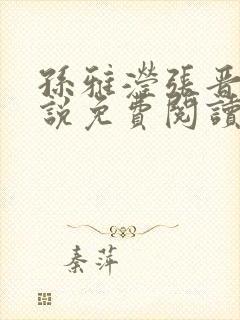 孫雅瀅張晋
說免費閱讀
秦萍